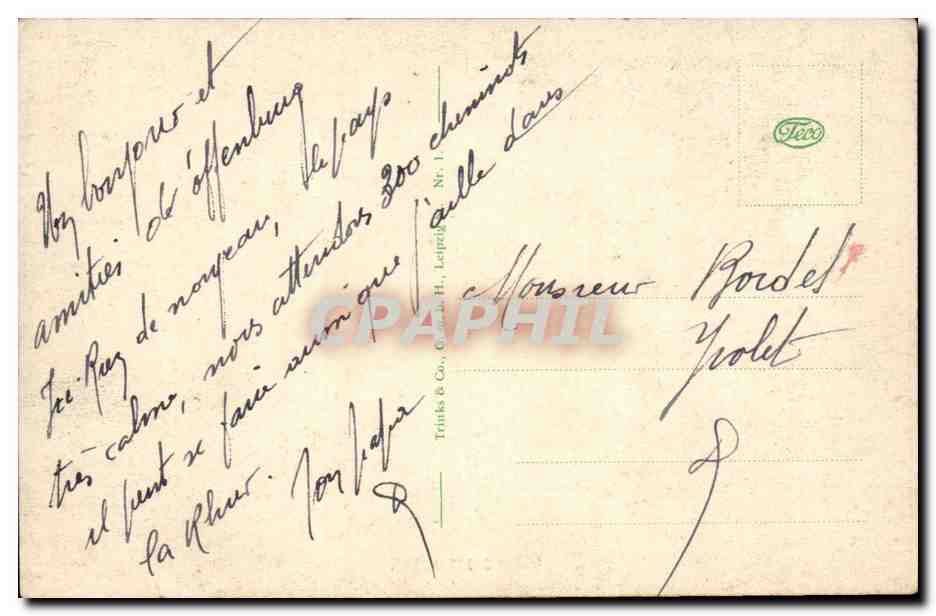 bonjour et
amitiés d'offenburg
Ici Rien de nouveau, le pays
très calme, nous attendons 300 cheminots
il peut se faire aussi que j'aille dans
la Rhur. Ton
Trinks & Co., G. m. b. H., Leipzig Nr. 1.
Teco
Monsieur Bordel
CPAPHIL